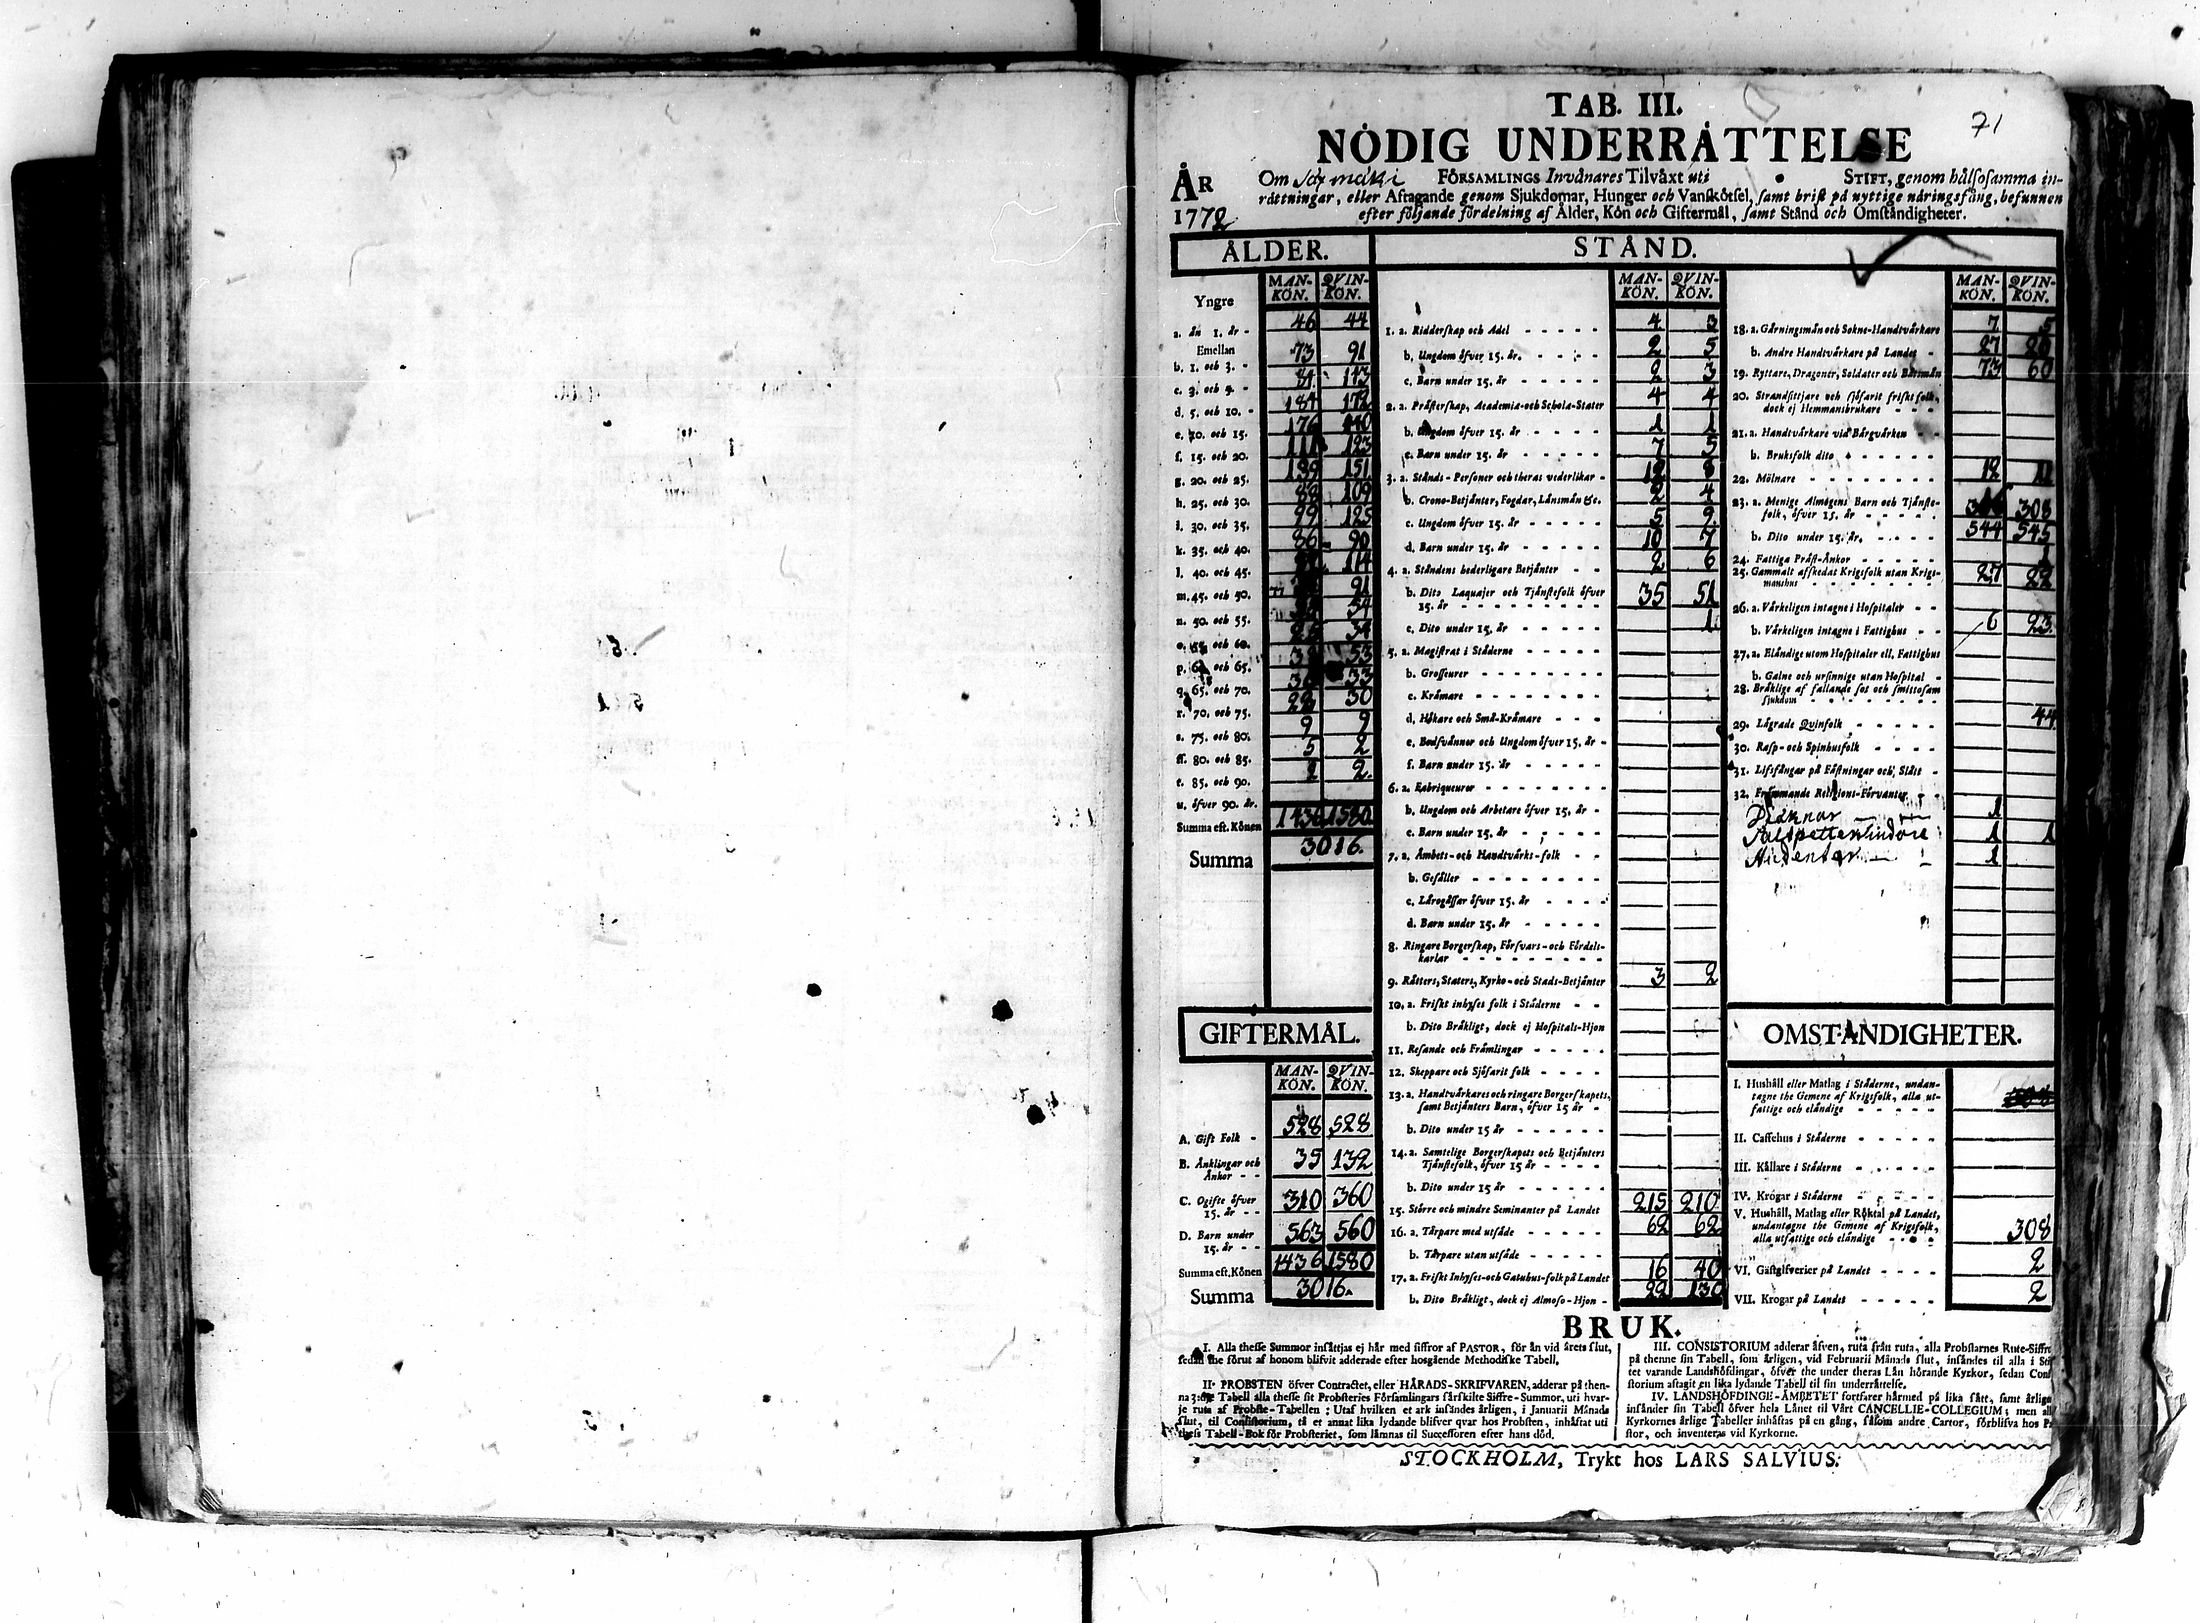 TAB. III.
71
NÖDIG UNDERRÅTTELSE
ÅR 1772
Om Säkmäki FÖRSAMLINGS Invånares Tilvåxt uti STIFT, genom hålsosamma in-
råttningar, eller Aftagande genom Sjukdomar, Hunger och Vanskötsel, samt brist på nyttige näringsfång, befunnen
efter följande fördelning af Ålder, Kön och Giftermål, samt Stånd och Omständigheter.
ÅLDER.
MAN-KÖN. QVIN-KÖN.
Yngre
a. än 1. år - 46 44
Emellan
b. 1. och 3. - 73 91
c. 3. och 5. - 81 113
d. 5. och 10. - 184 172
e. 10. och 15. 176 140
f. 15. och 20. 111 123
g. 20. och 25. 139 151
h. 25. och 30. 88 109
i. 30. och 35. 99 125
k. 35. och 40. 86 90
l. 40. och 45. 114
m. 45. och 50. 91
n. 50. och 55. 54
o. 55. och 60. 34
p. 60. och 65. 53
q. 65. och 70. 33
r. 70. och 75. 22 30
s. 75. och 80. 9 9
ff. 80. och 85. 5 2
t. 85. och 90. 2 2
u. öfver 90. år.
Summa eft. Könen 1436 1580
Summa 3016.
GIFTERMÅL.
MAN-KÖN. QVIN-KÖN.
A. Gift Folk - 528 528
B. Änklingar och
Änkor - - 35 132
C. Ogifte öfver
15. år - - 310 360
D. Barn under
15. år - - 563 560
Summa eft. Könen 1436 1580
Summa 3016.
STÅND.
MAN-KÖN. QVIN-KÖN.
1. a. Ridderskap och Adel - - - - - 4 3
b. Ungdom öfver 15. år. - - - - 2 5
c. Barn under 15. år - - - - - 2 3
2. a. Prästerskap, Academia-och Schola-Stater 4 4
b. Ungdom öfver 15. år - - - - 1 1
c. Barn under 15. år - - - - 7 5
3. a. Stånds-Personer och theras vederlikar - 12 8
b. Crono-Betjänter, Fogdar, Länsmän &c. 2 4
c. Ungdom öfver 15. år - - - - 5 9
d. Barn under 15. år - - - - - 10 7
4. a. Ståndens hederligare Betjänter - - 2 6
b. Dito Laquajer och Tjänstefolk öfver
15. år - - - - - - - - - 35 51
c. Dito under 15. år - - - - - 1
5. a. Magistrat i Städerne - - - - -
b. Grosseurer - - - - - - -
c. Krämare - - - - - - - -
d. Hökare och Små-Krämare - - -
e. Bodsvänner och Ungdom öfver 15. år -
f. Barn under 15. år - - - - -
6. a. Fabriqueurer - - - - - - -
b. Ungdom och Arbetare öfver 15. år -
c. Barn under 15. år - - - - -
7. a. Ämbets-och Handtvärks-folk - -
b. Gesäller - - - - - - - -
c. Lärogåssar öfver 15. år - - - -
d. Barn under 15. år - - - - -
8. Ringare Borgerskap, Försvars-och Fördels-
karlar - - - - - - - - -
9. Rätters, Staters, Kyrko-och Stads-Betjänter 3 2
10. a. Friskt inhyses folk i Städerne - -
b. Dito Bräkligt, dock ej Hospitals-Hjon
11. Resande och Främlingar - - - - -
12. Skeppare och Sjöfarit folk - - - -
13. a. Handtvärkares och ringare Borgerskapets,
samt Betjänters Barn, öfver 15 år -
b. Dito under 15 år - - - - - -
14. a. Samtelige Borgerskapets och Betjänters
Tjänstefolk, öfver 15 år - - - - -
b. Dito under 15 år - - - - - -
15. Större och mindre Seminanter på Landet 215 210
16. a. Tårpare med utsäde - - - - - 62 62
b. Tårpare utan utsäde - - - - -
17. a. Friskt Inhyses-och Gatuhus-folk på Landet 16 40
b. Dito Bräkligt, dock ej Almoso-Hjon - 22 130
MAN-KÖN. QVIN-KÖN.
18. a. Gärningsmän och Sokne-Handtvärkare 7 5
b. Andre Handtvärkare på Landet - 27 20
19. Ryttare, Dragoner, Soldater och Båtsmän 73 60
20. Strandsittjare och sjöfarit friskt folk,
dock ej Hemmansbrukare - - -
21. a. Handtvärkare vid Bärgvärken - -
b. Bruksfolk dito - - - - - -
22. Mölnare - - - - - - - - 12 11
23. a. Menige Almogens Barn och Tjänste-
folk, öfver 15. år - - - - - 308
b. Dito under 15. år. - - - - - 544 545
24. Fattiga Präst-Änkor - - - - - 1
25. Gammalt affskedat Krigsfolk utan Krigs-
manshus - - - - - - - - 27 22
26. a. Värkeligen intagne i Hospitaler - -
b. Värkeligen intagne i Fattighus - - 6 23
27. a. Eländige utom Hospitaler ell. Fattighus
b. Galne och ursinnige utan Hospital -
28. Bräklige af fallande sot och smittosam
sjukdom - - - - - - - -
29. Lägrade Qvinfolk - - - - - 44
30. Rasp-och Spinhusfolk - - - -
31. Lifsfångar på Fästningar och Slått -
32. Främmande Religions-Förvanter - -
Diäknar 1
Saltpettersiudare 1 1
Studenter 1
OMSTÄNDIGHETER.
I. Hushåll eller Matlag i Städerne, undan-
tagne the Gemene af Krigsfolk, alla ut-
fattige och eländige - - - - -
II. Caffehus i Städerne - - - - -
III. Källare i Städerne - - - - -
IV. Krögar i Städerne - - - - -
V. Hushåll, Matlag eller Röktal på Landet,
undantagne the Gemene af Krigsfolk,
alla utfattige och eländige - - - - 308
VI. Gästgifverier på Landet - - - - 2
VII. Krogar på Landet - - - - - 2
BRUK.
I. Alla thesse Summor insättjas ej här med siffror af PASTOR, för än vid årets slut,
sedan the förut af honom blifvit adderade efter hosgående Methodiske Tabell.
II. PROBSTEN öfver Contractet, eller HÄRADS-SKRIFVAREN, adderar på then-
na 3:dje Tabell alla thesse sit Probsteries Församlingars särskilte Siffre-Summor, uti hvar-
je ruta af Probste-Tabellen; Utaf hvilken et ark insändes årligen, i Januarii Månads
slut, til Consistorium, tå et annat lika lydande blifver qvar hos Probsten, inhäftat uti
thess Tabell-Bok för Probsteriet, som lämnas til Successoren efter hans död.
III. CONSISTORIUM adderar äfven, ruta från ruta, alla Probstarnes Rute-Siffror
på thenne sin Tabell, som årligen, vid Februarii Månads slut, insändes til alla i Stif
tet varande Landshöfdingar, öfver the under theras Län hörande Kyrkor, sedan Con
storium aftagit en lika lydande Tabell til sin underrättelse.
IV. LANDSHÖFDINGE-ÄMBETET fortfarer härmed på lika sätt, samt årlige
insänder sin Tabell öfver hela Länet til Vårt CANCELLIE-COLLEGIUM; men all
Kyrkornes årlige Tabeller inhäftas på en gång, såsom andre Cartor, förblifva hos Pa
stor, och inventeras vid Kyrkorne.
STOCKHOLM, Trykt hos LARS SALVIUS.